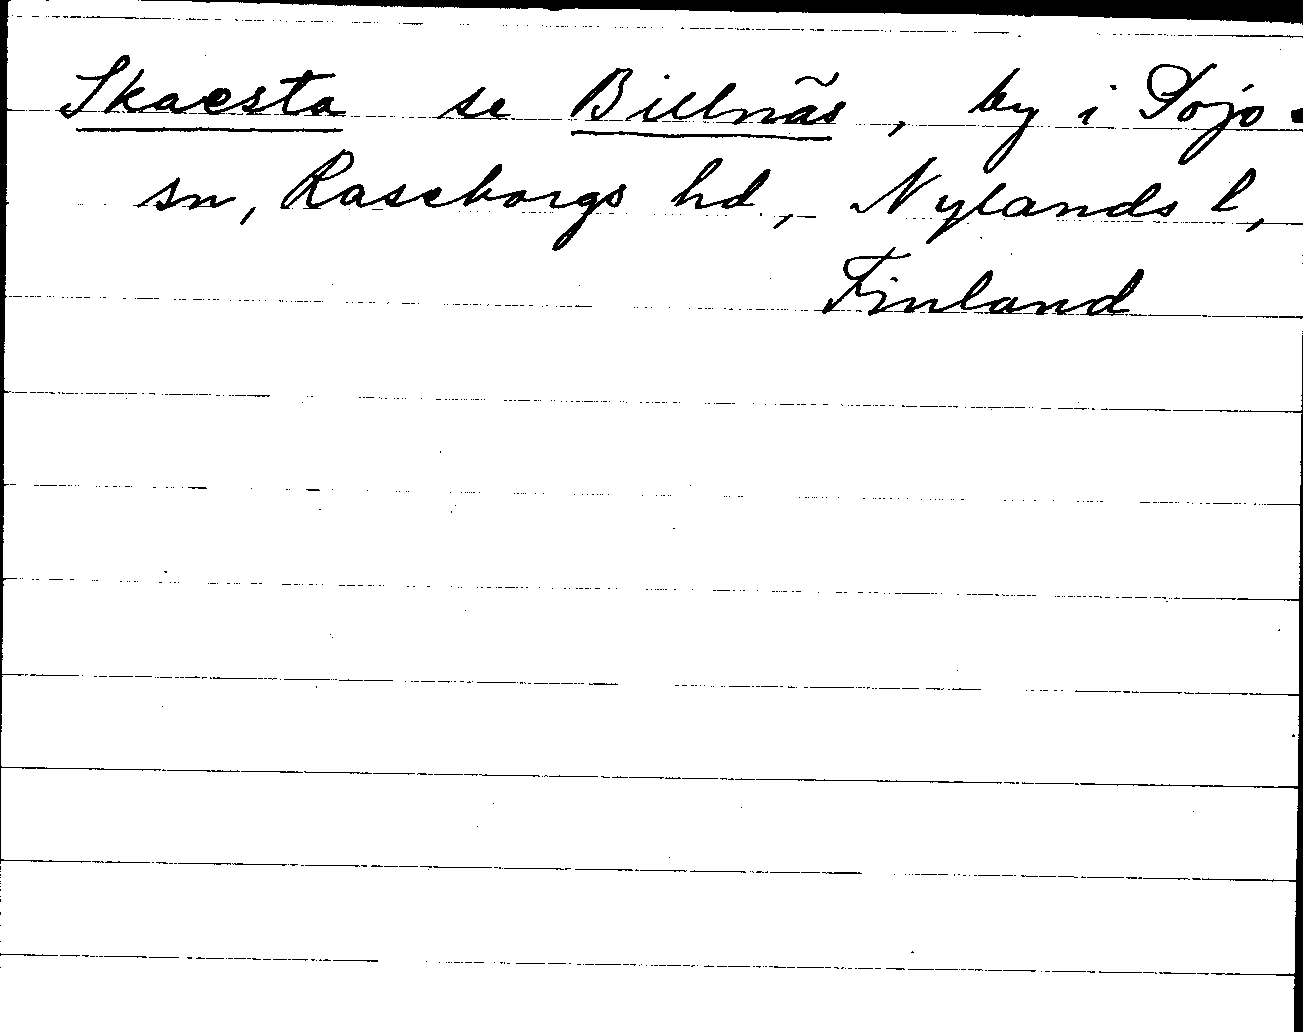 Skaesta se Billnäs, by i Pojo
sn, Raseborgs hd, Nylands l,
Finland